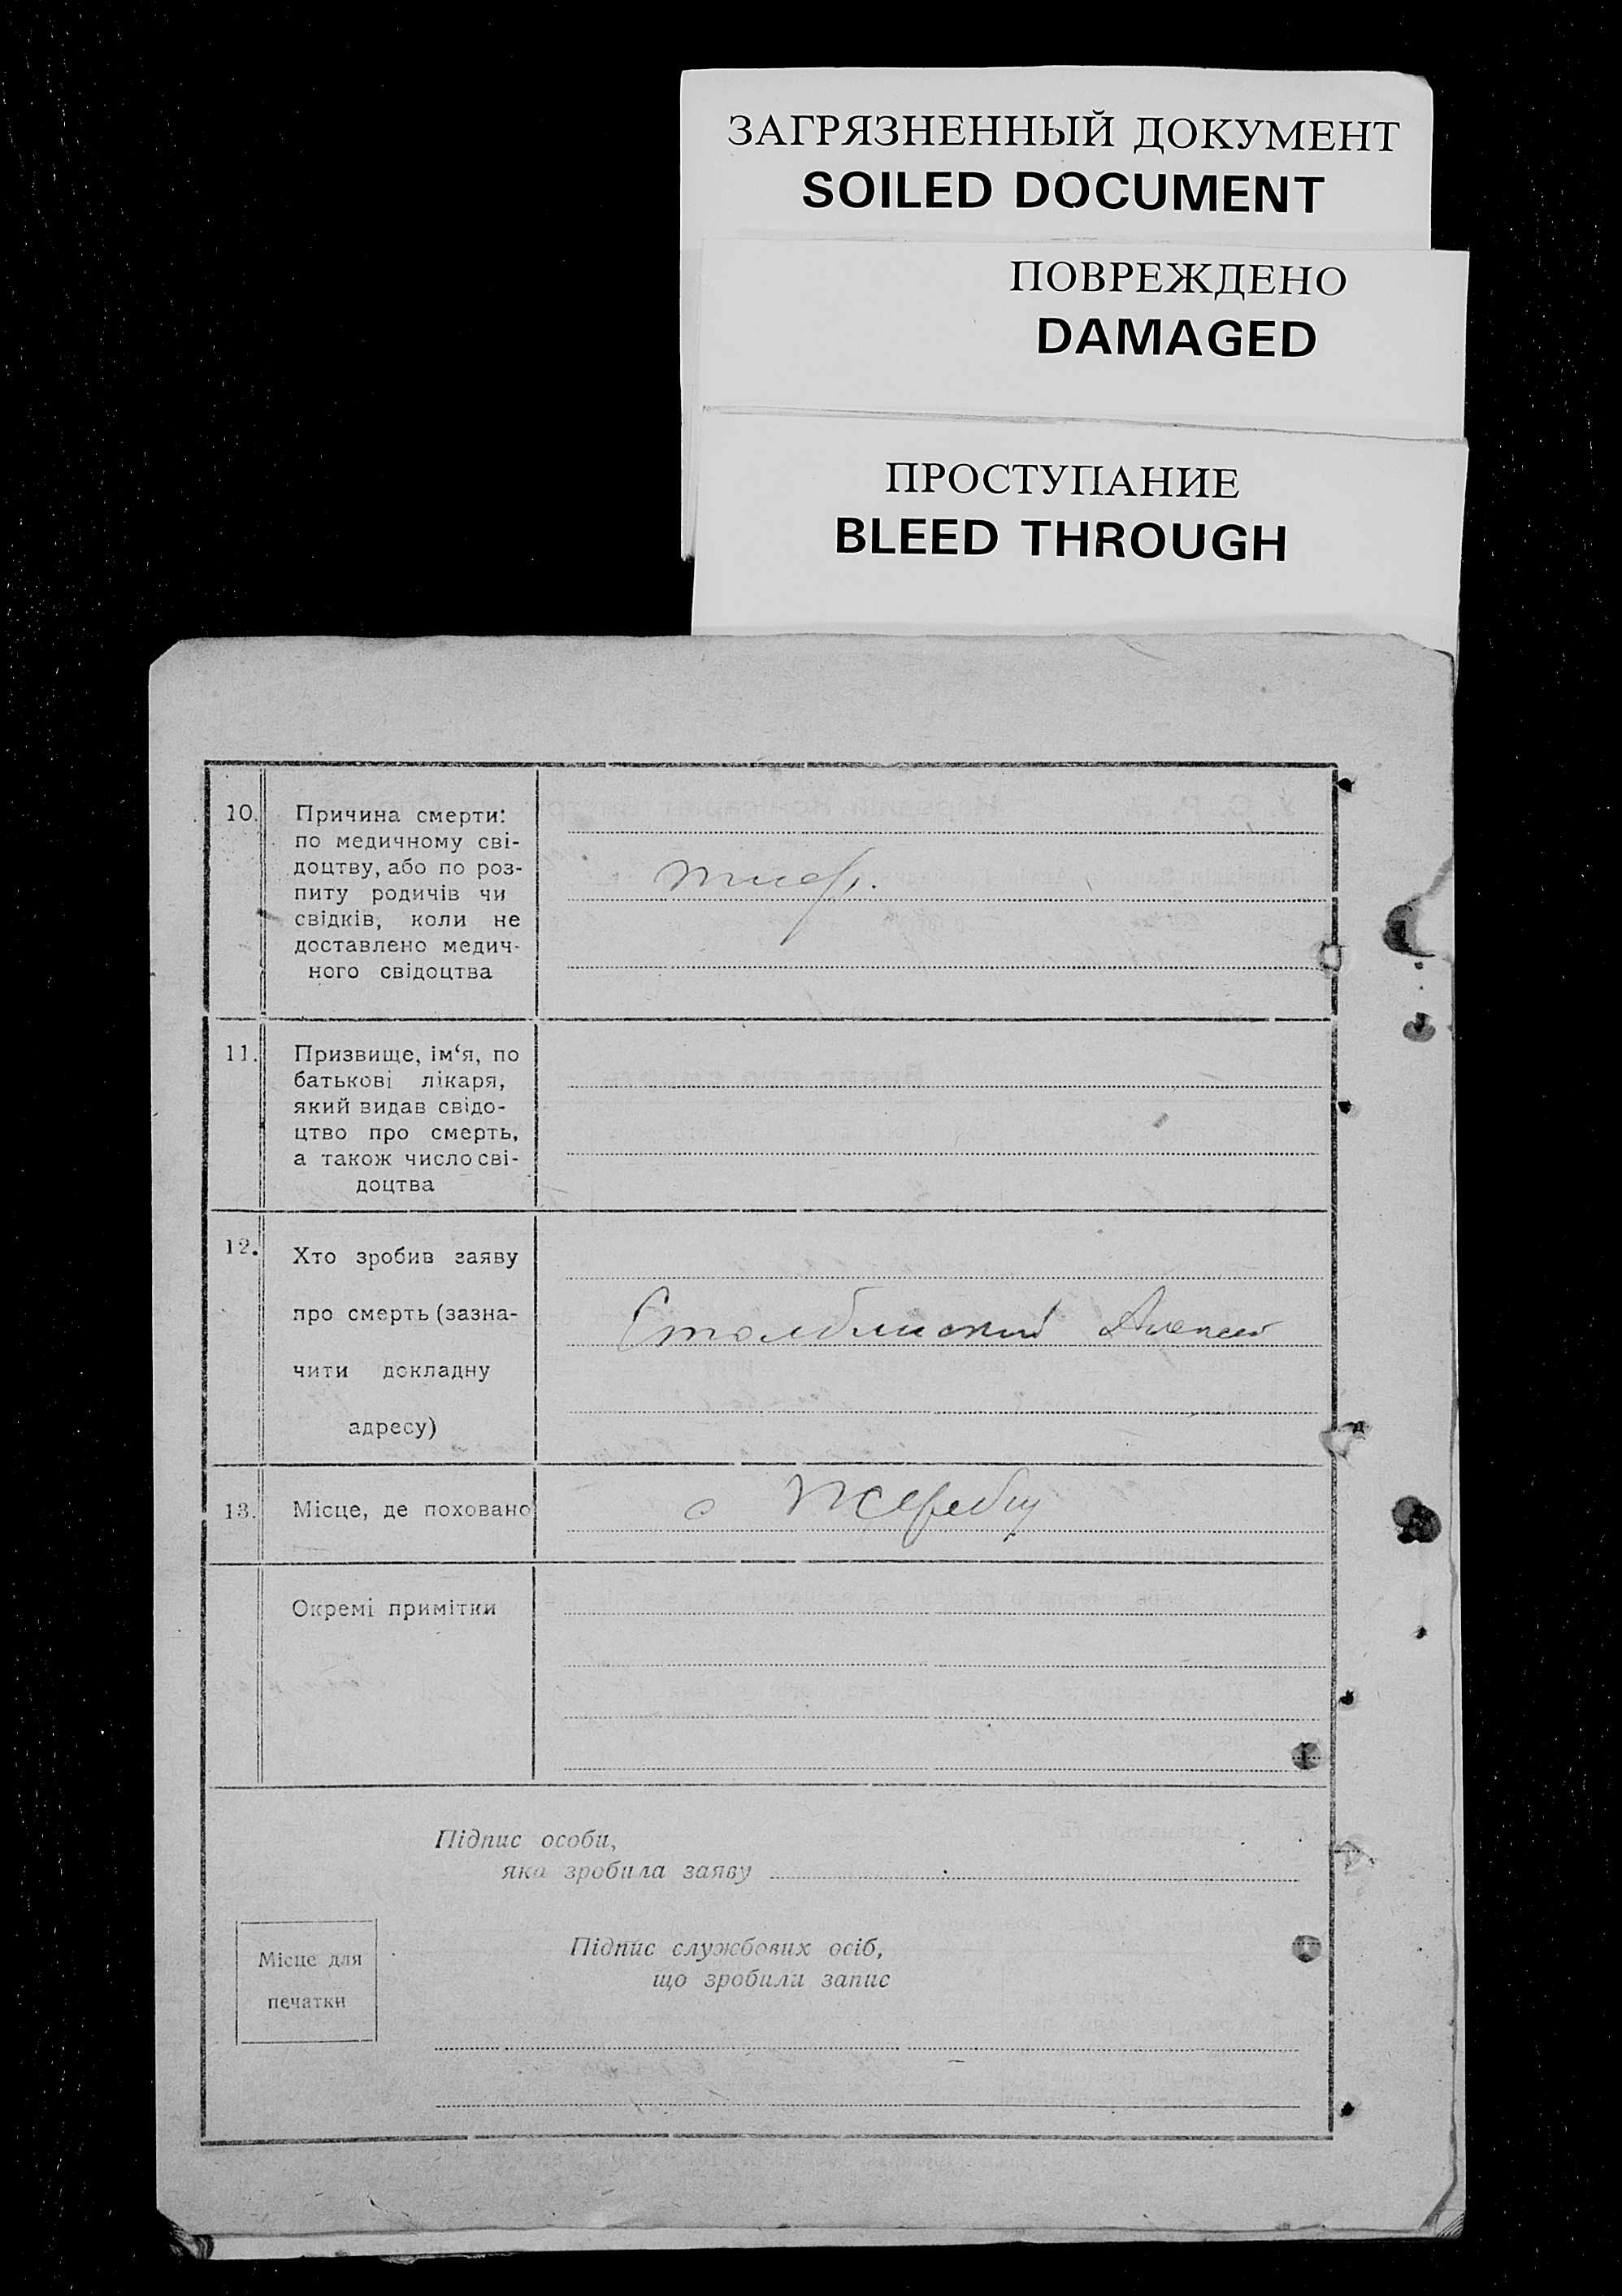 ЗАГРЯЗНЕННЫЙ ДОКУМЕНТ
SOILED DOCUMENT
ПОВРЕЖДЕНО
DAMAGED
ПРОСТУПАНИЕ
BLEED THROUGH
10. Причина смерти:
по медичному сві-
доцтву, або по роз-
питу родичів чи
свідків, коли не
доставлено медич-
ного свідоцтва
тиф.
11. Призвище, ім‘я, по
батькові лікаря,
який видав свідо-
цтво про смерть,
а також число сві-
доцтва
12. Хто зробив заяву
про смерть (зазна-
чити докладну
адресу)
Алексей
13. Місце, де поховано
с Жеребец
Окремі примітки
Підпис особи,
яка зробила заяву
Місце для
печатки
Підпис службових осіб,
що зробили запис